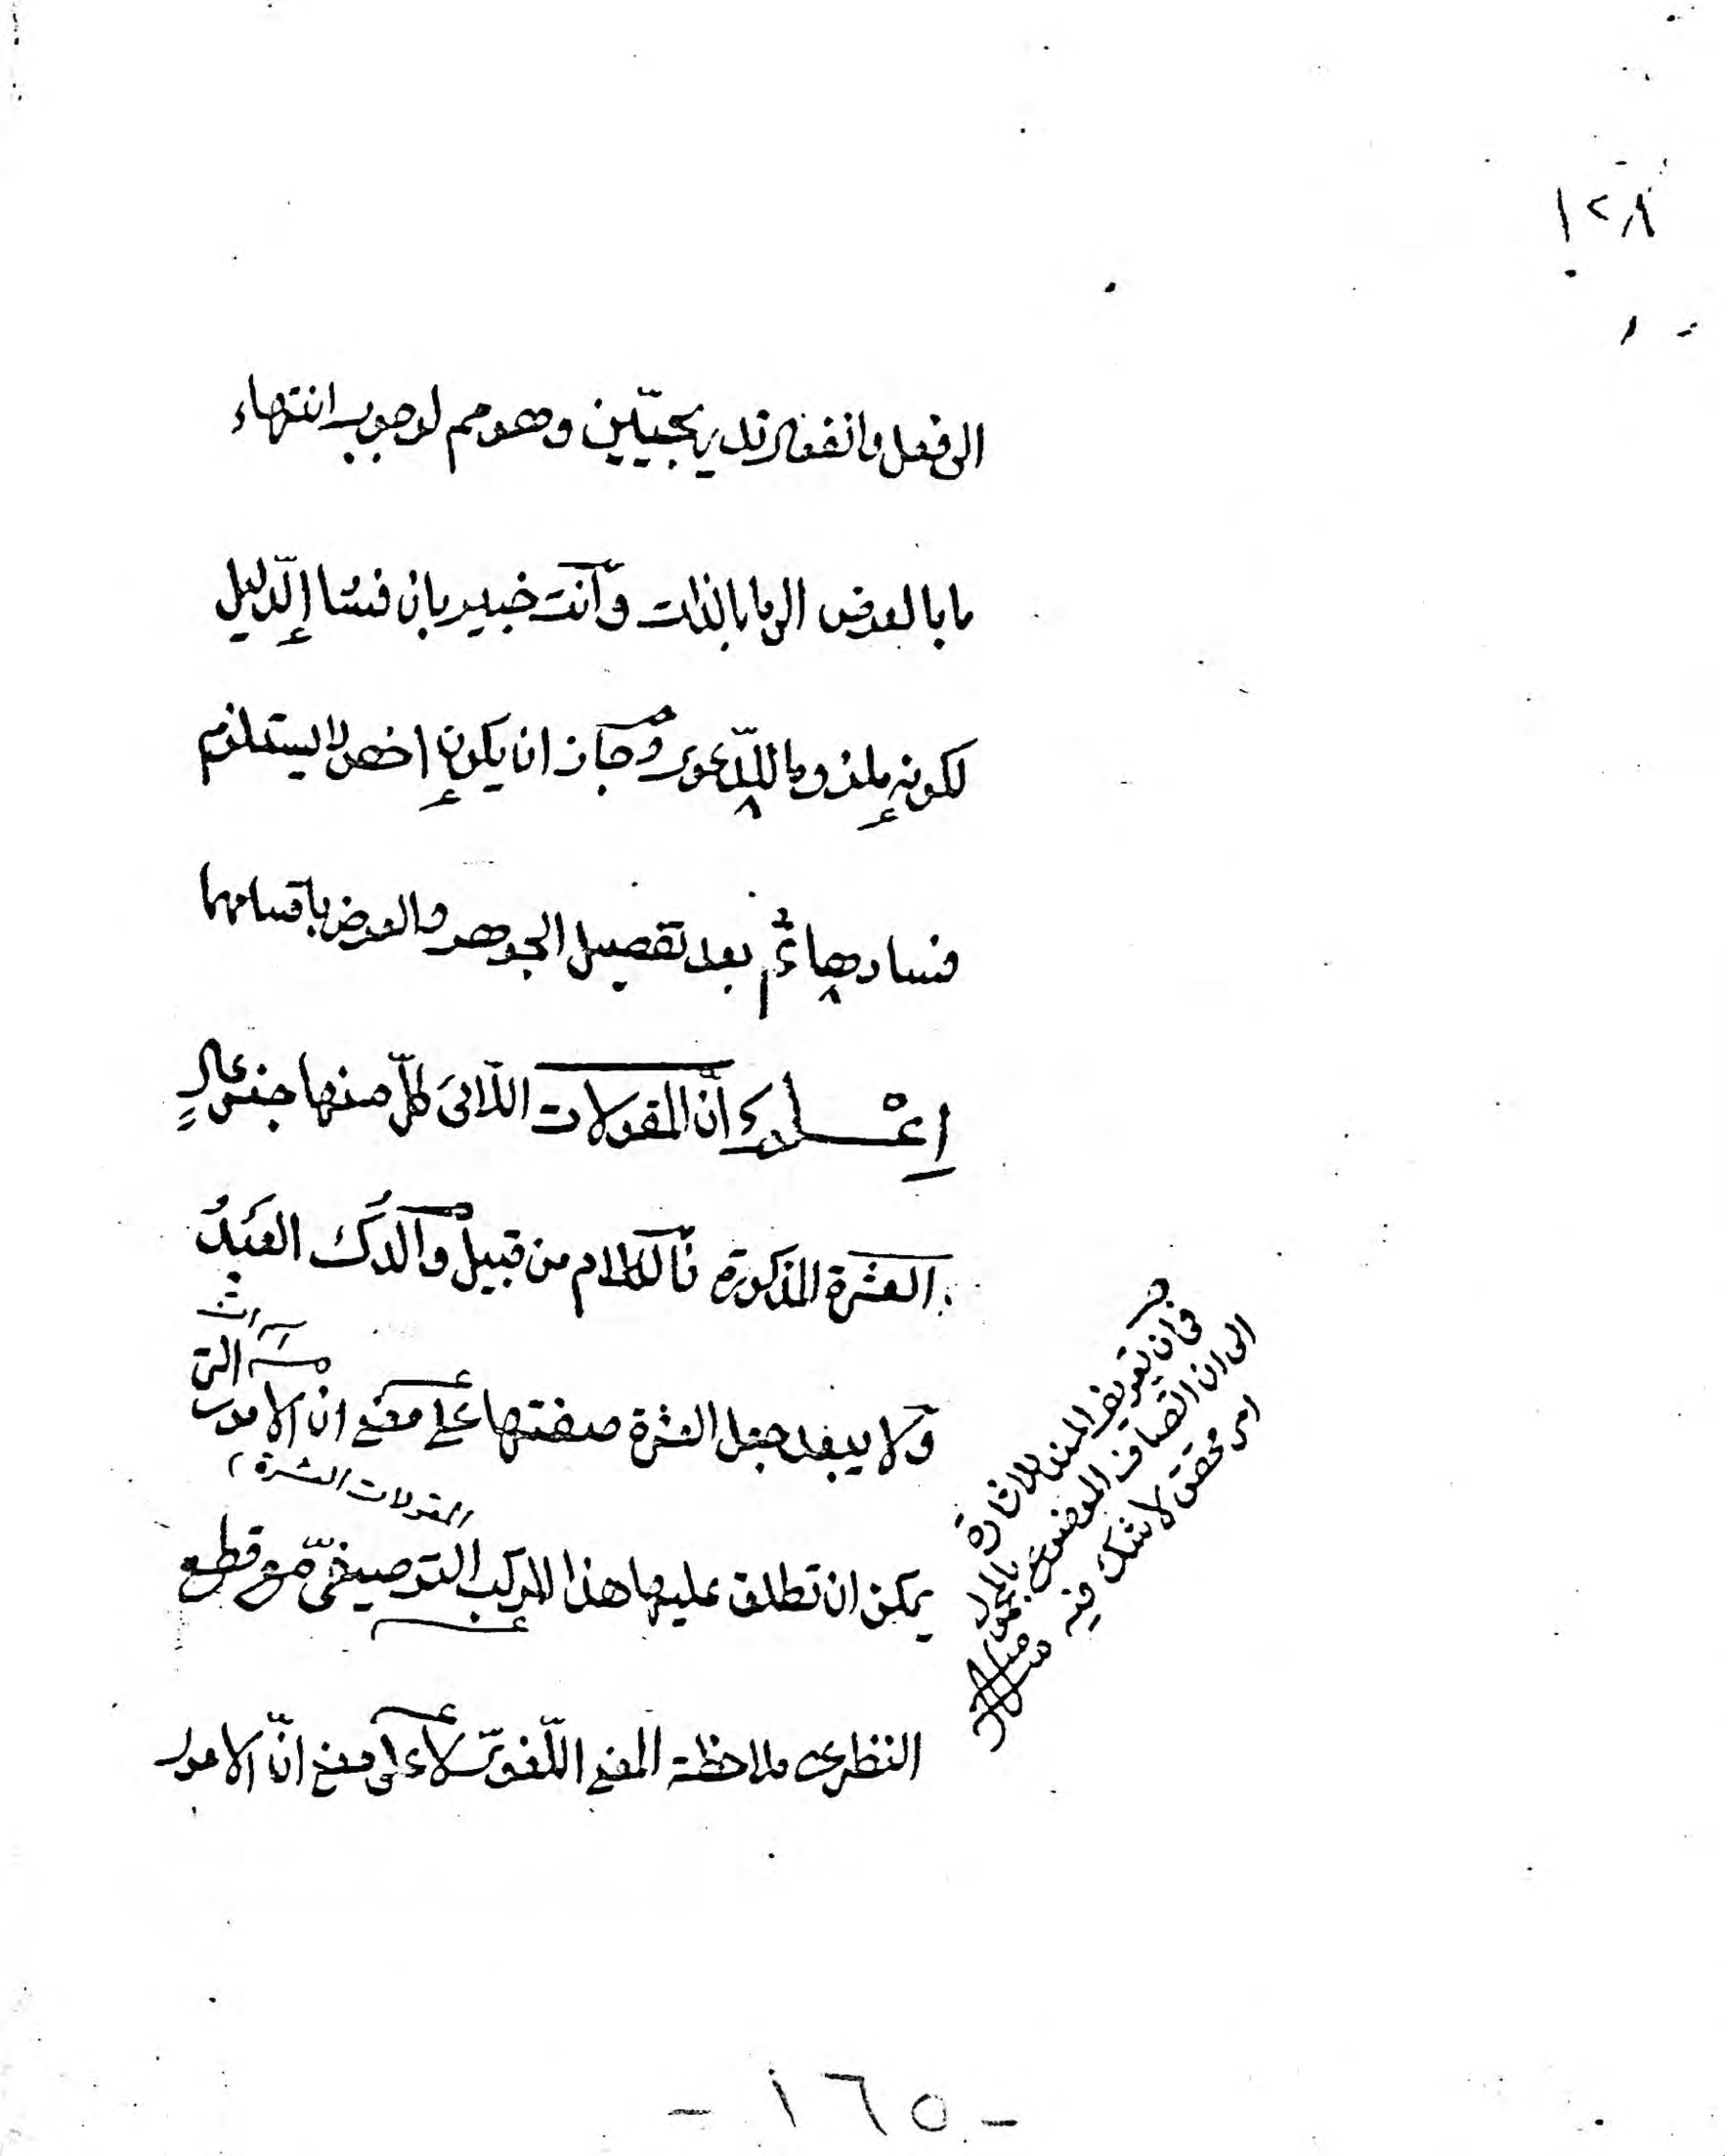 ١٢٨
الى فعل وانفعال تدريجيّين وهو مم لوجوب انتهاء
ما بالعرض الى ما بالذات وانت خبير بان فساد الدّليل
لكونه ملزوما للدّعوى وجاز ان يكون اخص لا يستلزم
فسادها ثم بعد تفصيل الجوهر والعرض باقسامهما
اعْلم انّ المقولات اللّاتى كلّ منها جنس عالٍ
العشرة المذكورة فالكلام من قبيل والدك العبد
ولا يبعد جعل العشرة صفتها على معنى ان الامور التى
المقولات العشرة
يمكن ان تطلق عليها هذا المركب التوصيفىّ مع قطع
النظر عن ملاحظة المعنى اللّغوىّ لا على معنى انّ الامور
فى ان تعريف
الى ان اتصاف الموضوع
امر محقق لا شك فيه
- ١٦٥ -